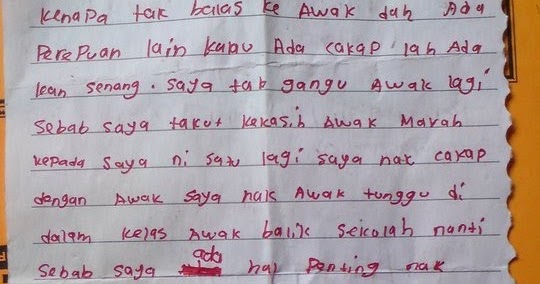 kenapa tak balas ke Awak dah Ada
PerePuan lain kalau Ada cakap lah Ada
kan senang. saya tab gangu Awak lagi
Sebab saya takut kekasih Awak Marah
kepada saya ni satu lagi saya nak cakap
dengan Awak saya nak Awak tunggu di
dalam kelas Awak balik Sekolah nanti
Sebab saya ada hal Penting nak